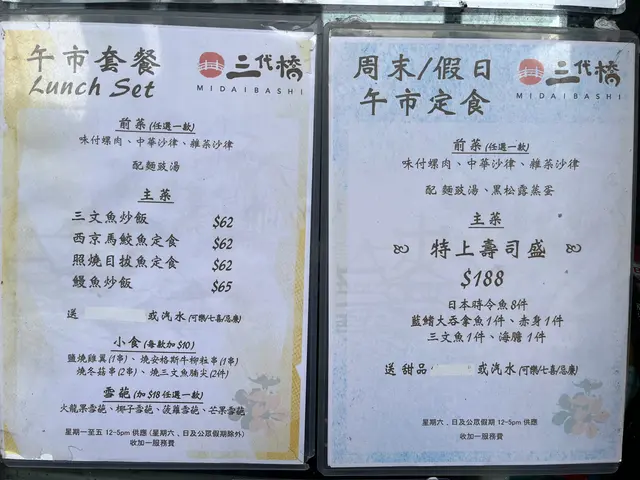 午市套餐
Lunch Set
三代橋
MIDAIBASHI
前菜 (任選一款)
味付螺肉、中華沙律、雜菜沙律
配麵豉湯
主菜
三文魚炒飯 $62
西京馬鮫魚定食 $62
照燒目拔魚定食 $62
鰻魚炒飯 $65
送 或汽水 (可樂/七喜/忌廉)
小食 (每款加 $10)
鹽燒雞翼 (1串)、燒安格斯牛柳粒串 (1串)
燒冬菇串 (2串)、燒三文魚腩尖 (2件)
雪葩 (加 $18 任選一款)
火龍果雪葩、椰子雪葩、菠蘿雪葩、芒果雪葩
星期一至五 12-5pm 供應 (星期六、日及公眾假期除外)
收加一服務費
周末/假日
午市定食
三代橋
MIDAIBASHI
前菜 (任選一款)
味付螺肉、中華沙律、雜菜沙律
配 麵豉湯、黑松露蒸蛋
主菜
特上壽司盛
$188
日本時令魚 8件
藍鰭大吞拿魚 1件、赤身 1件
三文魚 1件、海膽 1件
送 甜品 或汽水 (可樂/七喜/忌廉)
星期六、日及公眾假期 12-5pm 供應
收加一服務費